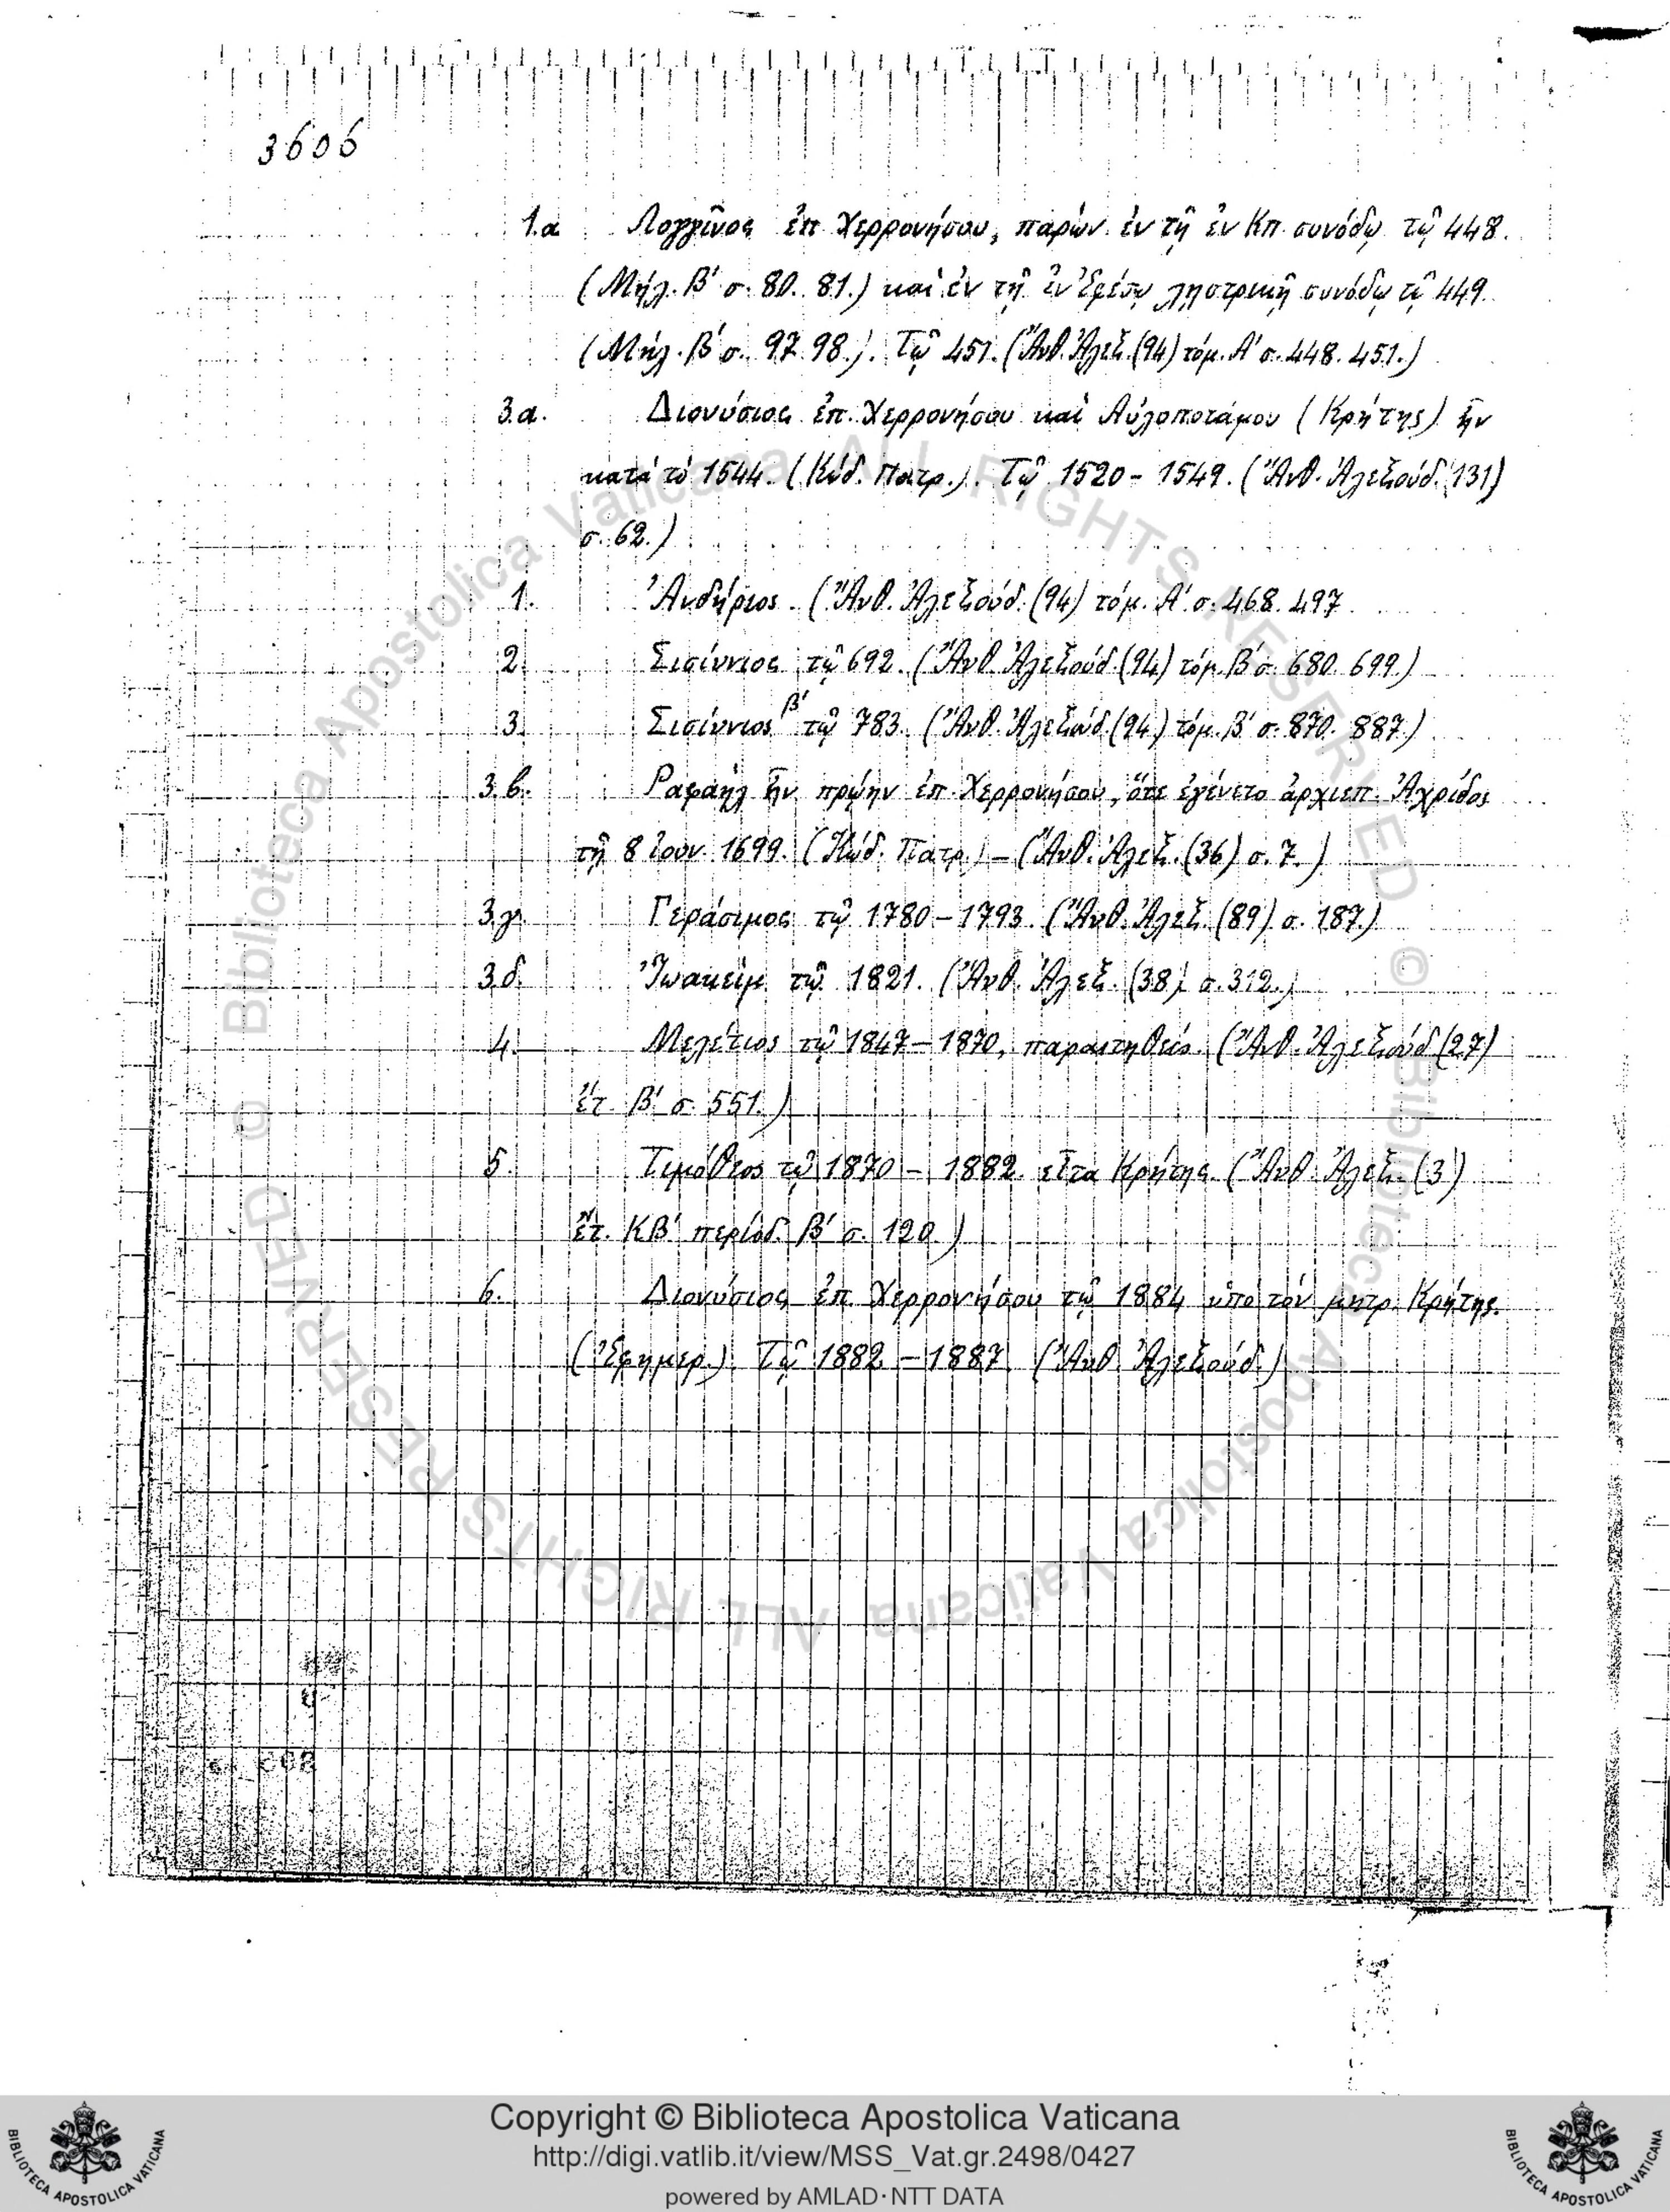 3606
1.α Λογγῖνος ἐπ. Χερρονήσου, παρών ἐν τῇ ἐν Κπ. συνόδῳ τῷ 448.
(Μήλ. Β' σ. 80. 81.) καὶ ἐν τῇ ἐν Ἐφέσῳ λῃστρικῇ συνόδῳ τῷ 449.
(Μήλ. Β' σ. 97. 98.). Τῷ 451. (Ἄνθ. Ἀλεξ. (94) τόμ. Α' σ. 448. 451.)
3.α. Διονύσιος ἐπ. Χερρονήσου καὶ Αὐλοποτάμου (Κρήτης) ἦν
κατὰ τὸ 1544. (Κώδ. Πατρ.). Τῷ 1520 - 1549. (Ἄνθ. Ἀλεξούδ. (131)
σ. 62.)
1. Ἀνδήριος. (Ἄνθ. Ἀλεξούδ. (94) τόμ. Α' σ. 468. 497
2. Σισίννιος τῷ 692. (Ἄνθ. Ἀλεξούδ. (94) τόμ. Β' σ. 680. 699.)
3. Σισίννιος β' τῷ 783. (Ἄνθ. Ἀλεξούδ. (94) τόμ. Β' σ. 870. 887.)
3.β. Ραφαὴλ ἦν πρῴην ἐπ. Χερρονήσου, ὅτε ἐγένετο ἀρχιεπ. Ἀχρίδος
τῇ 8 Ἰουν. 1699. (Κώδ. Πατρ.) – (Ἄνθ. Ἀλεξ. (36) σ. 7.)
3.γ. Γεράσιμος τῷ 1780 – 1793. (Ἄνθ. Ἀλεξ. (89) σ. 187.)
3.δ. Ἰωακεὶμ τῷ 1821. (Ἄνθ. Ἀλεξ. (38) σ. 312.)
4. Μελέτιος τῷ 1847 – 1870, παραιτηθείς. (Ἄνθ. Ἀλεξούδ. (27)
ἔτ. Β' σ. 551.)
5. Τιμόθεος τῷ 1870 – 1882. εἶτα Κρήτης. (Ἄνθ. Ἀλεξ. (3)
ἔτ. ΚΒ' περίοδ. Β' σ. 120)
6. Διονύσιος ἐπ. Χερρονήσου τῷ 1884 ὑπὸ τὸν μητρ. Κρήτης.
(Ἐφημερ.). Τῷ 1882 – 1887 (Ἄνθ. Ἀλεξούδ.)
© Biblioteca Apostolica Vaticana ALL RIGHTS RESERVED © Biblioteca Apostolica Vaticana ALL RIGHTS RESERVED
Copyright © Biblioteca Apostolica Vaticana
http://digi.vatlib.it/view/MSS_Vat.gr.2498/0427
powered by AMLAD·NTT DATA
BIBLIOTECA APOSTOLICA VATICANA
BIBLIOTECA APOSTOLICA VATICANA